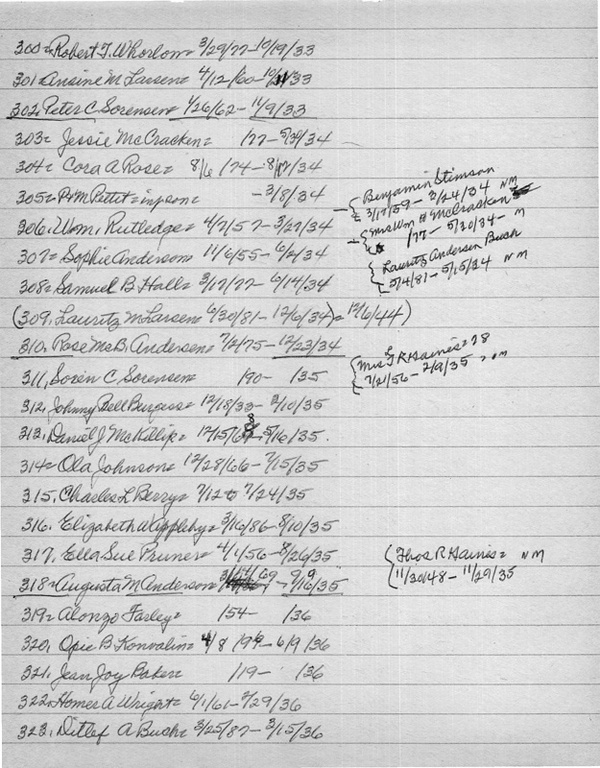 300= Robert T. Whorlow= 3/29/77-10/19/33
301= Ansine M Larsen= 4/12/60-10/11/33
302. Peter C Sorensen= 1/26/62-11/9/33
303= Jessie McCracken= /77- 5/ /34
304= Cora A Rose= 8/6 /74- 8/17/34
305= P+M Pettit = -3/8/34
{ Benjamin Stimson
3/17/59- 2/24/34 NM
306. Wm. Rutledge= 4/7/57- 3/27/34
{ Mrs Wm H McCracken=
/77- 5/30/34- M
307= Sophie Anderson= 11/6/55- 6/2/34
{ Lauritz Andersen Buch
5/4/81- 5/15/34 NM
308= Samuel B Hall= 3/17/77- 6/14/34
(309. Lauritz M Larsen= 6/30/81- 12/6/34) = 12/6/44)
310. Rose McB. Andersen= 7/2/75- 12/23/34
311, Soren C Sorensen= /90- /35
{ Mrs T R Haines= 78
7/21/56- 2/9/35 , NM
312. Johnny Bell Burgess= 12/18/33- 2/10/35
313. Daniel J McKillip= 12/15/68- 5/16/35.
314= Ola Johnson= 12/28/66- 7/15/35
315. Charles L Berry= 7/12 to 7/24/35
316. Elizabeth W Appleby= 3/16/86- 8/10/35
317. Ella Sue Pruner= 4/1/56- 8/26/35
{ Thos R Haines= NM
11/30/48- 11/29/35
318= Augusta M Anderson= 69 - 9/16/35
319= Alonzo Farley= /54- /36
320, Opie B Konvalin= 4/8 /94- 6/9 /36
321. Jean Joy Baker= /19- /36
322. Homer A Wright= 6/1/61- 2/29/36
323. Ditlef A Buch= 3/25/87- 3/15/36